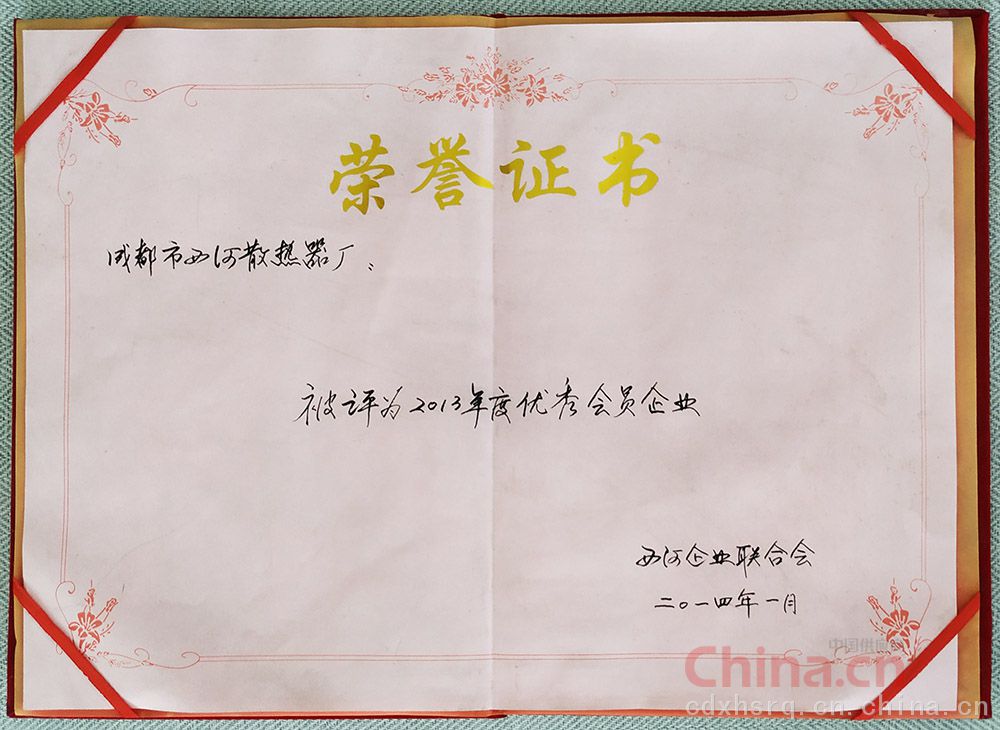 荣誉证书
成都市西河散热器厂:
被评为2013年度优秀会员企业
西河企业联合会
二〇一四年一月
中国供应商
China.cn
cdxhsrq.cn.china.cn